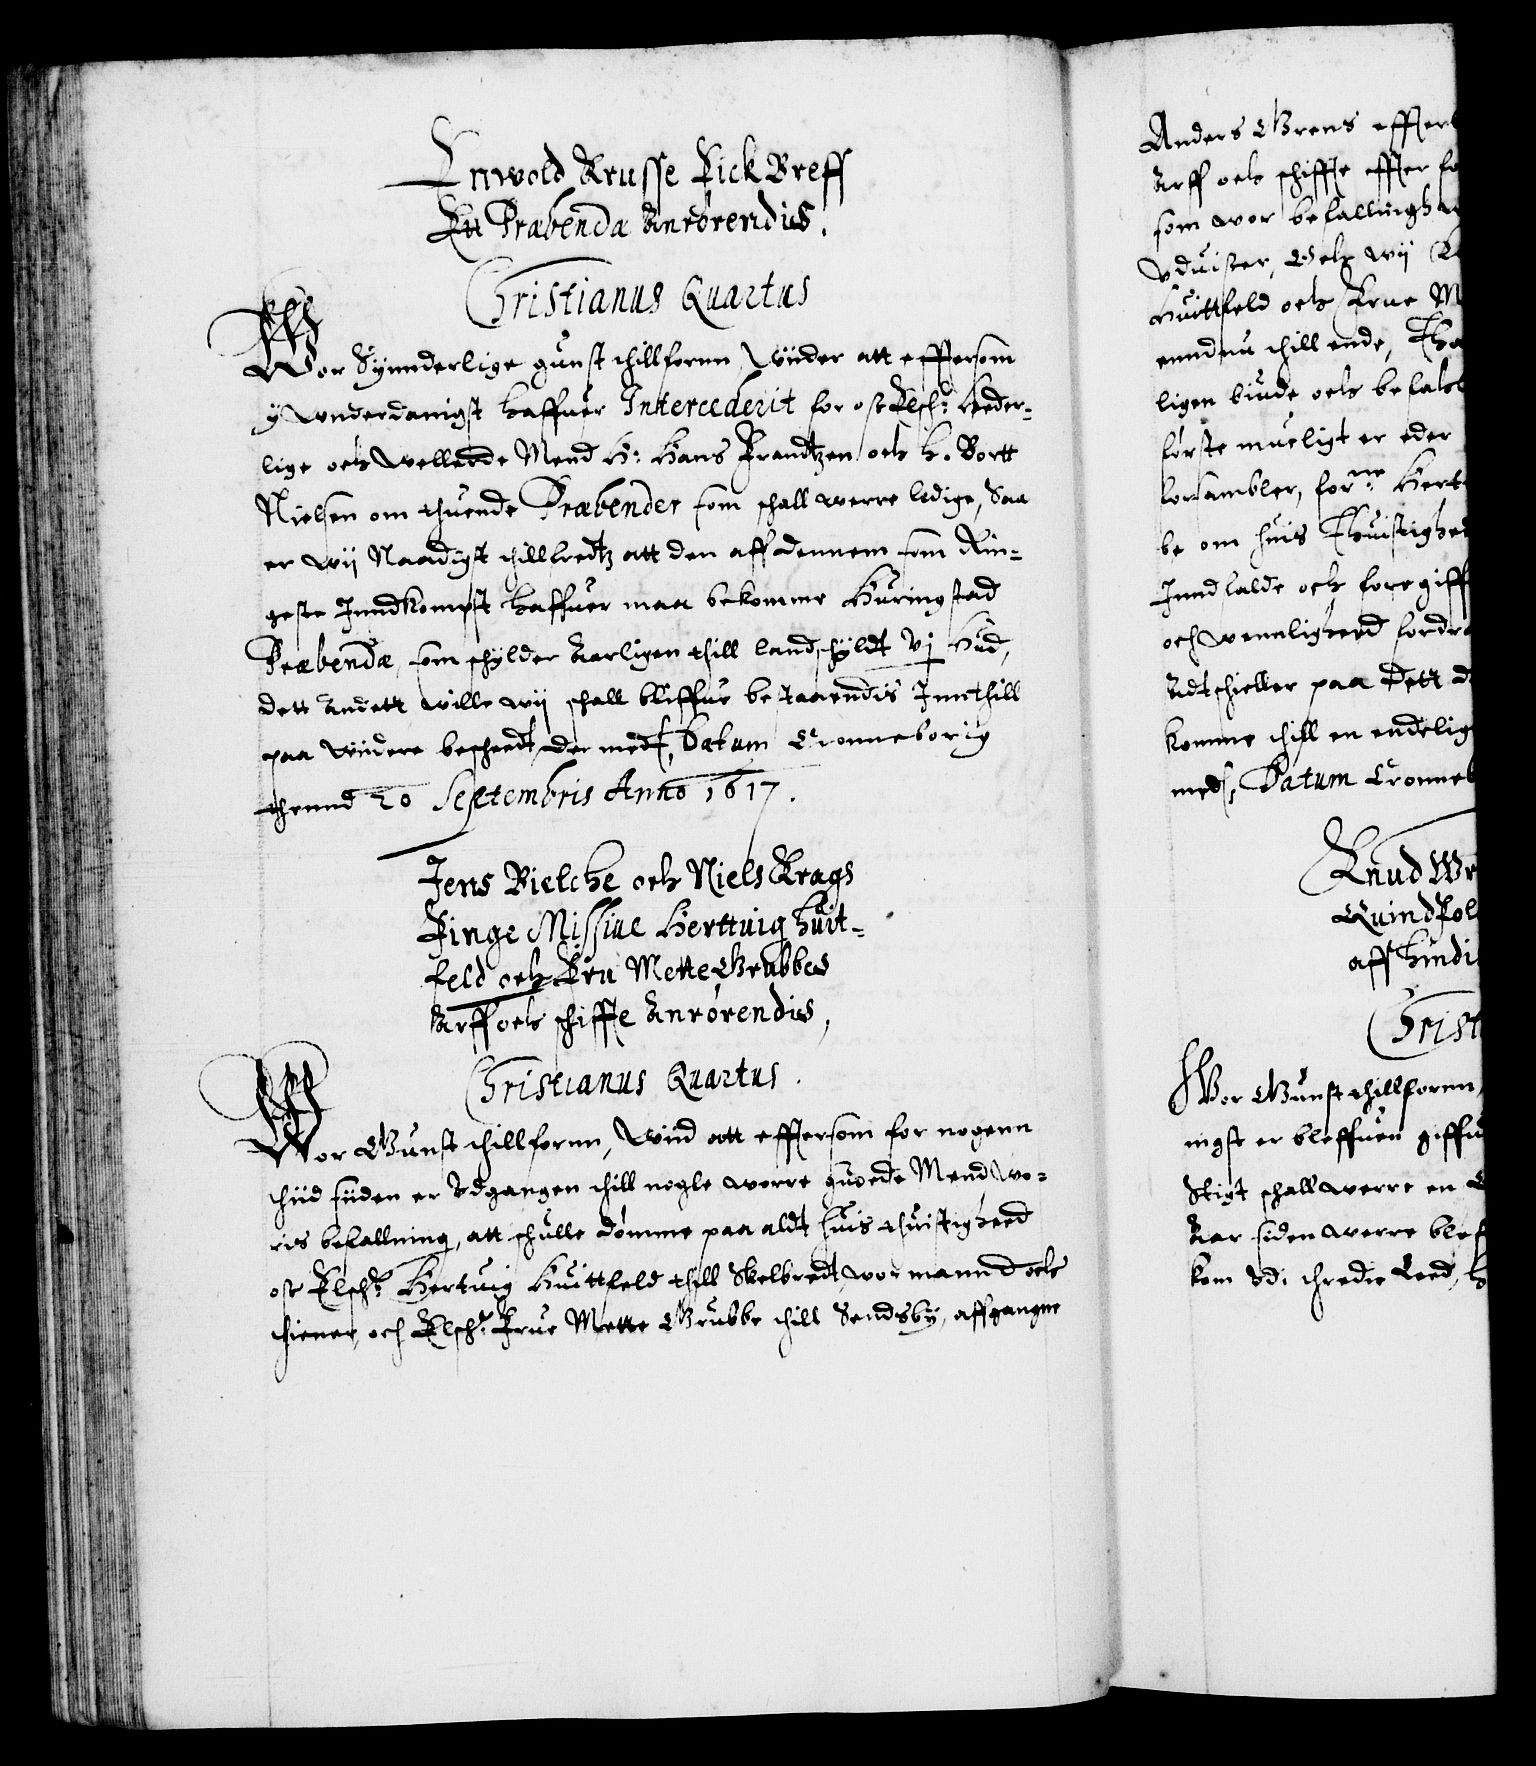 Enwold Krusse Fick Breff
Ett Præbenda Anrörendis.
Christianus Quartus
Wor Synnderlige gunst thillfornn, Wiider att effterson
y wnderdanigst haffuer Intercederit for oss Elsch: Heder-
lige och Wellerde Mend H: Hans Frandtzen och h. Bortt
Nielsen om thuende Præbender som schall werre ledige, Saa
er wij Naadigst thillfredtz att den aff dennem som Rin-
geste Inndkompst haffuer maa bekomme Huringstad
Præbendæ, som schylder Aarligen thill landschyldt vj Hud,
dett Andett wille wij schall bliffue bestaaendis Inntthill
paa widere beschedt, der med, Datum Cronneborig
thennd 20 Septembris Anno 1617.
Jens Bielche och Niels Krags
Finge Missiue Herttuig huit-
feld och Fru Mette Grubbes
Arff och schiffte Anrörendis,
Christianus Quartus.
Wor Gunst thillfornn, Wiid att effterson for nogenn
thiid siiden er Udgangen thill nogle worre guode Mend wo-
ris befallning, att schulle dömme paa aldt huis thuistigheed
oss Elsch: Hertuig Huittfeld thill Skelbredt, wor mannd och
thiener, och Elsch: Frue Mette Grubbe thill Sendsby, affgangne
Anders Grens effterl
Arff och schiffte effter fo
som wor befallingh
vduiser, Och wij
Huittfeld och Frue M
enndnu thill ende, Tha
ligen biude och befale
förste mueligt er eder
forsambler, forne Hert
be om huis Thuistighed
Inndkalde och foregiff
och wennligheed fordr
Adtschieller paa Dett
komme thill en endelig
med, Datum Cronneb
Knud W
Quind fol
aff
Christ
Wor Gunst thillfornn,
nigst er bleffuen giffu
Stigt schall werre en
Aar siden werre blef
kom Udi thredie Leed,